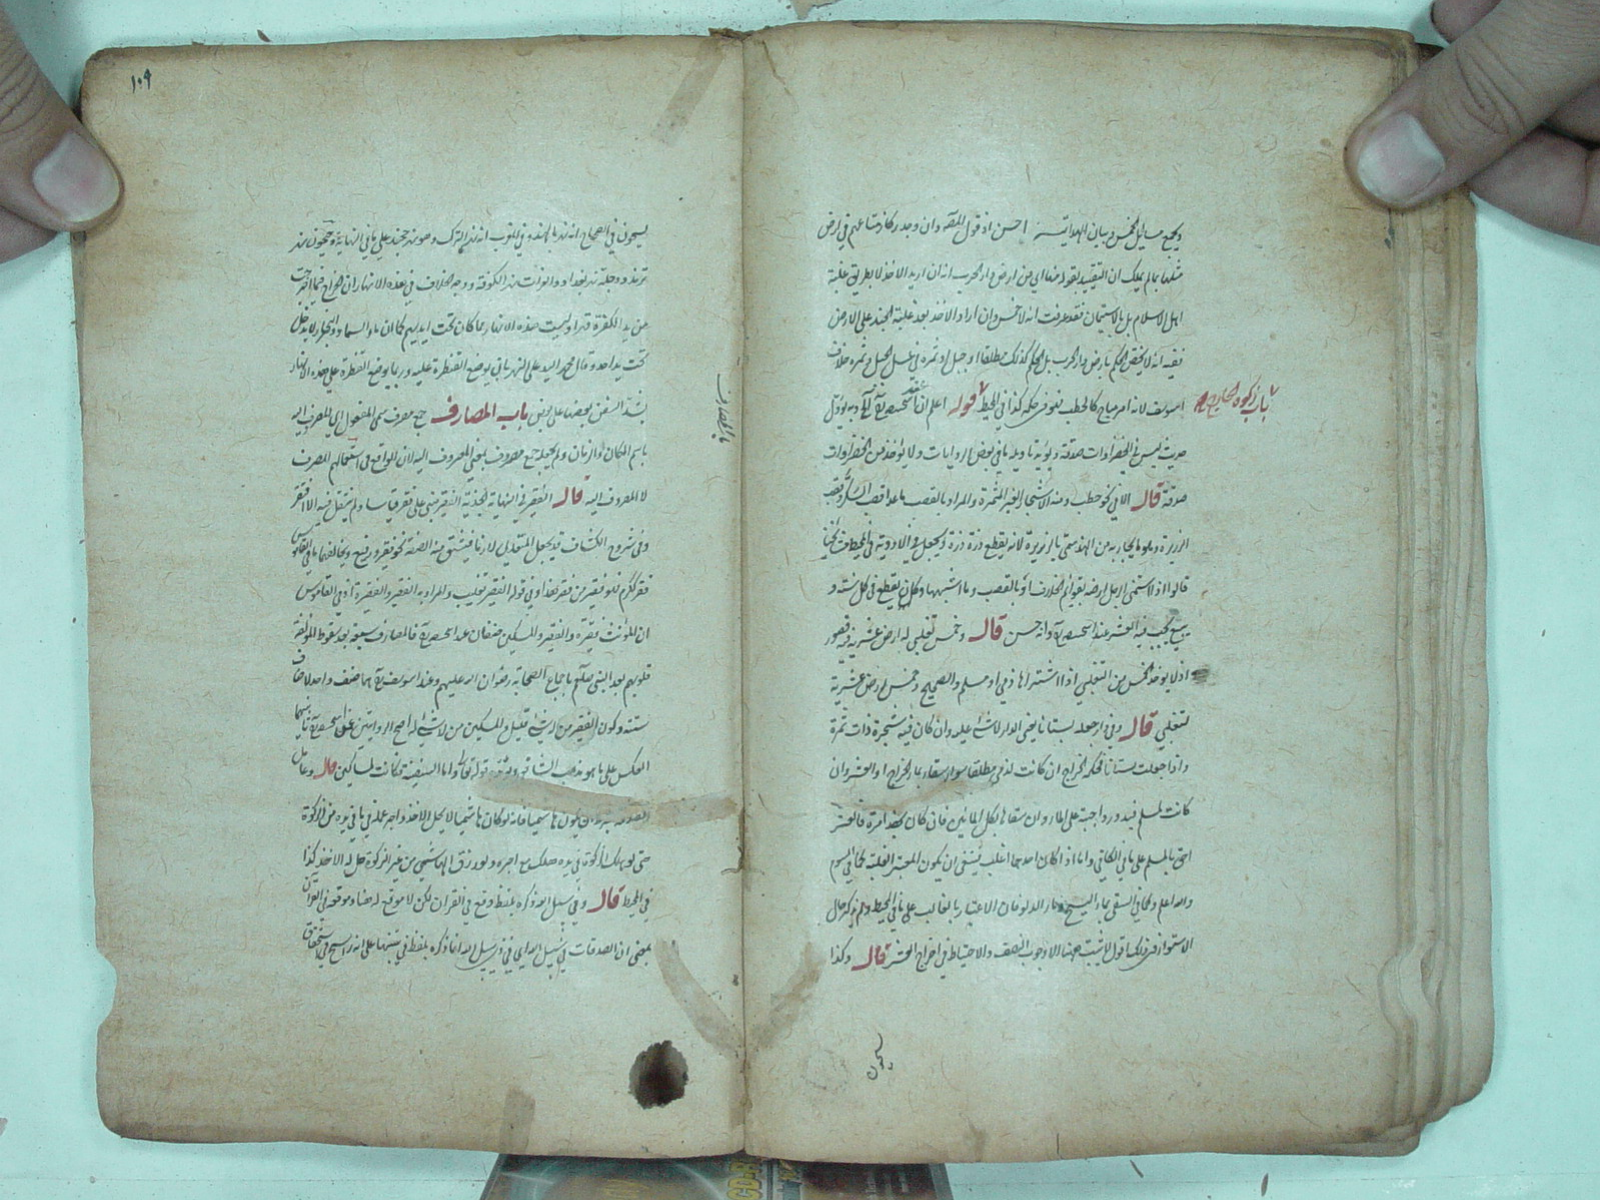 وجميع مسائل الخمس في بيان الهداية احسن اذ قول المصنف وان وجد ركاز متاعهم في ارض
منها بما لم يملك ان التقييد بقوله منها اي من ارض دار الحرب انه ان اريد الاخذ لا بطريق غلبة
اهل الاسلام بل بالاستيمان فقد عرفت انه لا خمس وان اراد الاخذ بعد غلبة الجند على الارض
ففيه انه لا يختص الحكم بارض دار الحرب بل الحكم كذلك مطلقا او جبل او ثمره في عسل الجبل وثمره خلاف
باب زكوة الخارج
ابي يوسف لانه امر مباح كالحطب فهو في حكمه كذا في المحيط قوله اعلم ان عند ابي حنيفة
حديث ليس في الخضراوات صدقة ويؤيد تاويله ما في بعض الروايات ولا يؤخذ من الخضراوات
صدقة قال الا في نحو حطب ومنه الاشجار الغير المثمرة والمراد بالقصب ما عدا قصب السكر وقصب
الذريرة وهو ما يجاء به من الهند سمي بالذريرة لانه يقطع ذرة ذرة ويجعل في الادوية في المحيط
قالوا اذا استنمى الرجل ارضه بقوائم الخلاف او بالقصب وما اشبهها وكان يقطع في كل سنة و
يبيع يجب فيه العشر عند ابي حنيفة وانه حسن قال وخمس تغلبي له ارض عشرية فيه قصور
اذ لا يؤخذ الخمس من التغلبي اذا اشتراها ذمي او مسلم والصحيح وخمس ارض عشرية
لتغلبي قال وفي دار جعلت بستانا يعني الدار لا شيء عليه وان كان فيه شجرة ذات ثمرة
واذا جعلت بستانا فحكمه الخراج ان كانت لذمي مطلقا سواء سقاه بماء الخراج او العشر وان
كانت لمسلم فيدور واجبه على الماء وان سقاها بكل المائين فان كان
احق بالمسلم على ما في الكافي واما اذا كان احدهما اغلب فينبغي ان يكون المعتبر الغلبة كما في السوم
والله اعلم وكما في السقي بماء السيح وماء الدلو فان الاعتبار بالغالب على ما في المحيط ولم يذكر حال
الاستواء في ذلك اقول لا يثبت ههنا الا وجوب النصف والاحتياط في اخراج العشر قال وكذا
سيحون
١٠٩
سيحون في الصحاح انه نهر بالهند وفي المغرب انه نهر الترك وهو نهر خجند على ما في النهاية وجيحون نهر
ترمذ ودجلة نهر بغداد والفرات نهر الكوفة ووجه الخلاف في هذه الانهار ان الخراج فيما اخرجت
من يد الكفرة قهرا وليست هذه الانهار مما كان تحت ايديهم كما ان ماء السماء والبحار لا يدخل
تحت يد احد وقال محمد اليد على النهر باتي بوضع القنطرة عليه وربما يوضع القنطرة على هذه الانهار
بشد السفن بعضها على بعض باب المصارف جمع مصرف سمي المفعول اي المصروف اليه
باب المصارف
باسم المكان والزمان ولم يجعل جمع مصروف بمعنى المصروف اليه لان الواقع في استعمالهم المصرف
لا المصروف اليه قال الفقير في النهاية الجزرية الفقير مبني على فقر قياسا ولم يقل فيه الا افتقر
وفي شروح الكشاف قد يجعل المتعدي لازما فيشتق منه الصفة نحو فقير ورفيع ويخالفهما ما في القاموس
فقر ككرم فهو فقير من فقر هذا وفي قوله الفقير تغليب والمراد به الفقير والفقيرة اذ في القاموس
ان المؤنث فقيرة والفقير والمسكين صنفان عند ابي حنيفة فالمصارف سبعة بعد سقوط المؤلفة
قلوبهم بعد النبي صلعم باجماع الصحابة رضوان الله عليهم وعند ابي يوسف هما صنف واحد
ستة وكون الفقير من له شيء قليل والمسكين من لا شيء له اصح الروايتين عن ابي حنيفة
العكس على ما هو مذهب الشافعي قوله تعالى واما السفينة فكانت لمساكين قال وعامل
الصدقة ان يكون هاشميا فانه لو كان هاشميا لا يحل الاخذ واجر عمله في ما في يده من الزكوة
حتى لو هلك الزكوة في يده هلك مع اجره ولو رزق الهاشمي من غير الزكوة حل له الاخذ كذا
في المحيط قال وفي سبيل الله ذكره بلفظ وقع في القران لكن لا موقع له هنا وموقعه في القرآن
بمعنى ان الصدقات في سبيل الله اي في ذي سبيل الله انما ذكره بلفظ في تنبيها على انه ارسخ في استحقاق